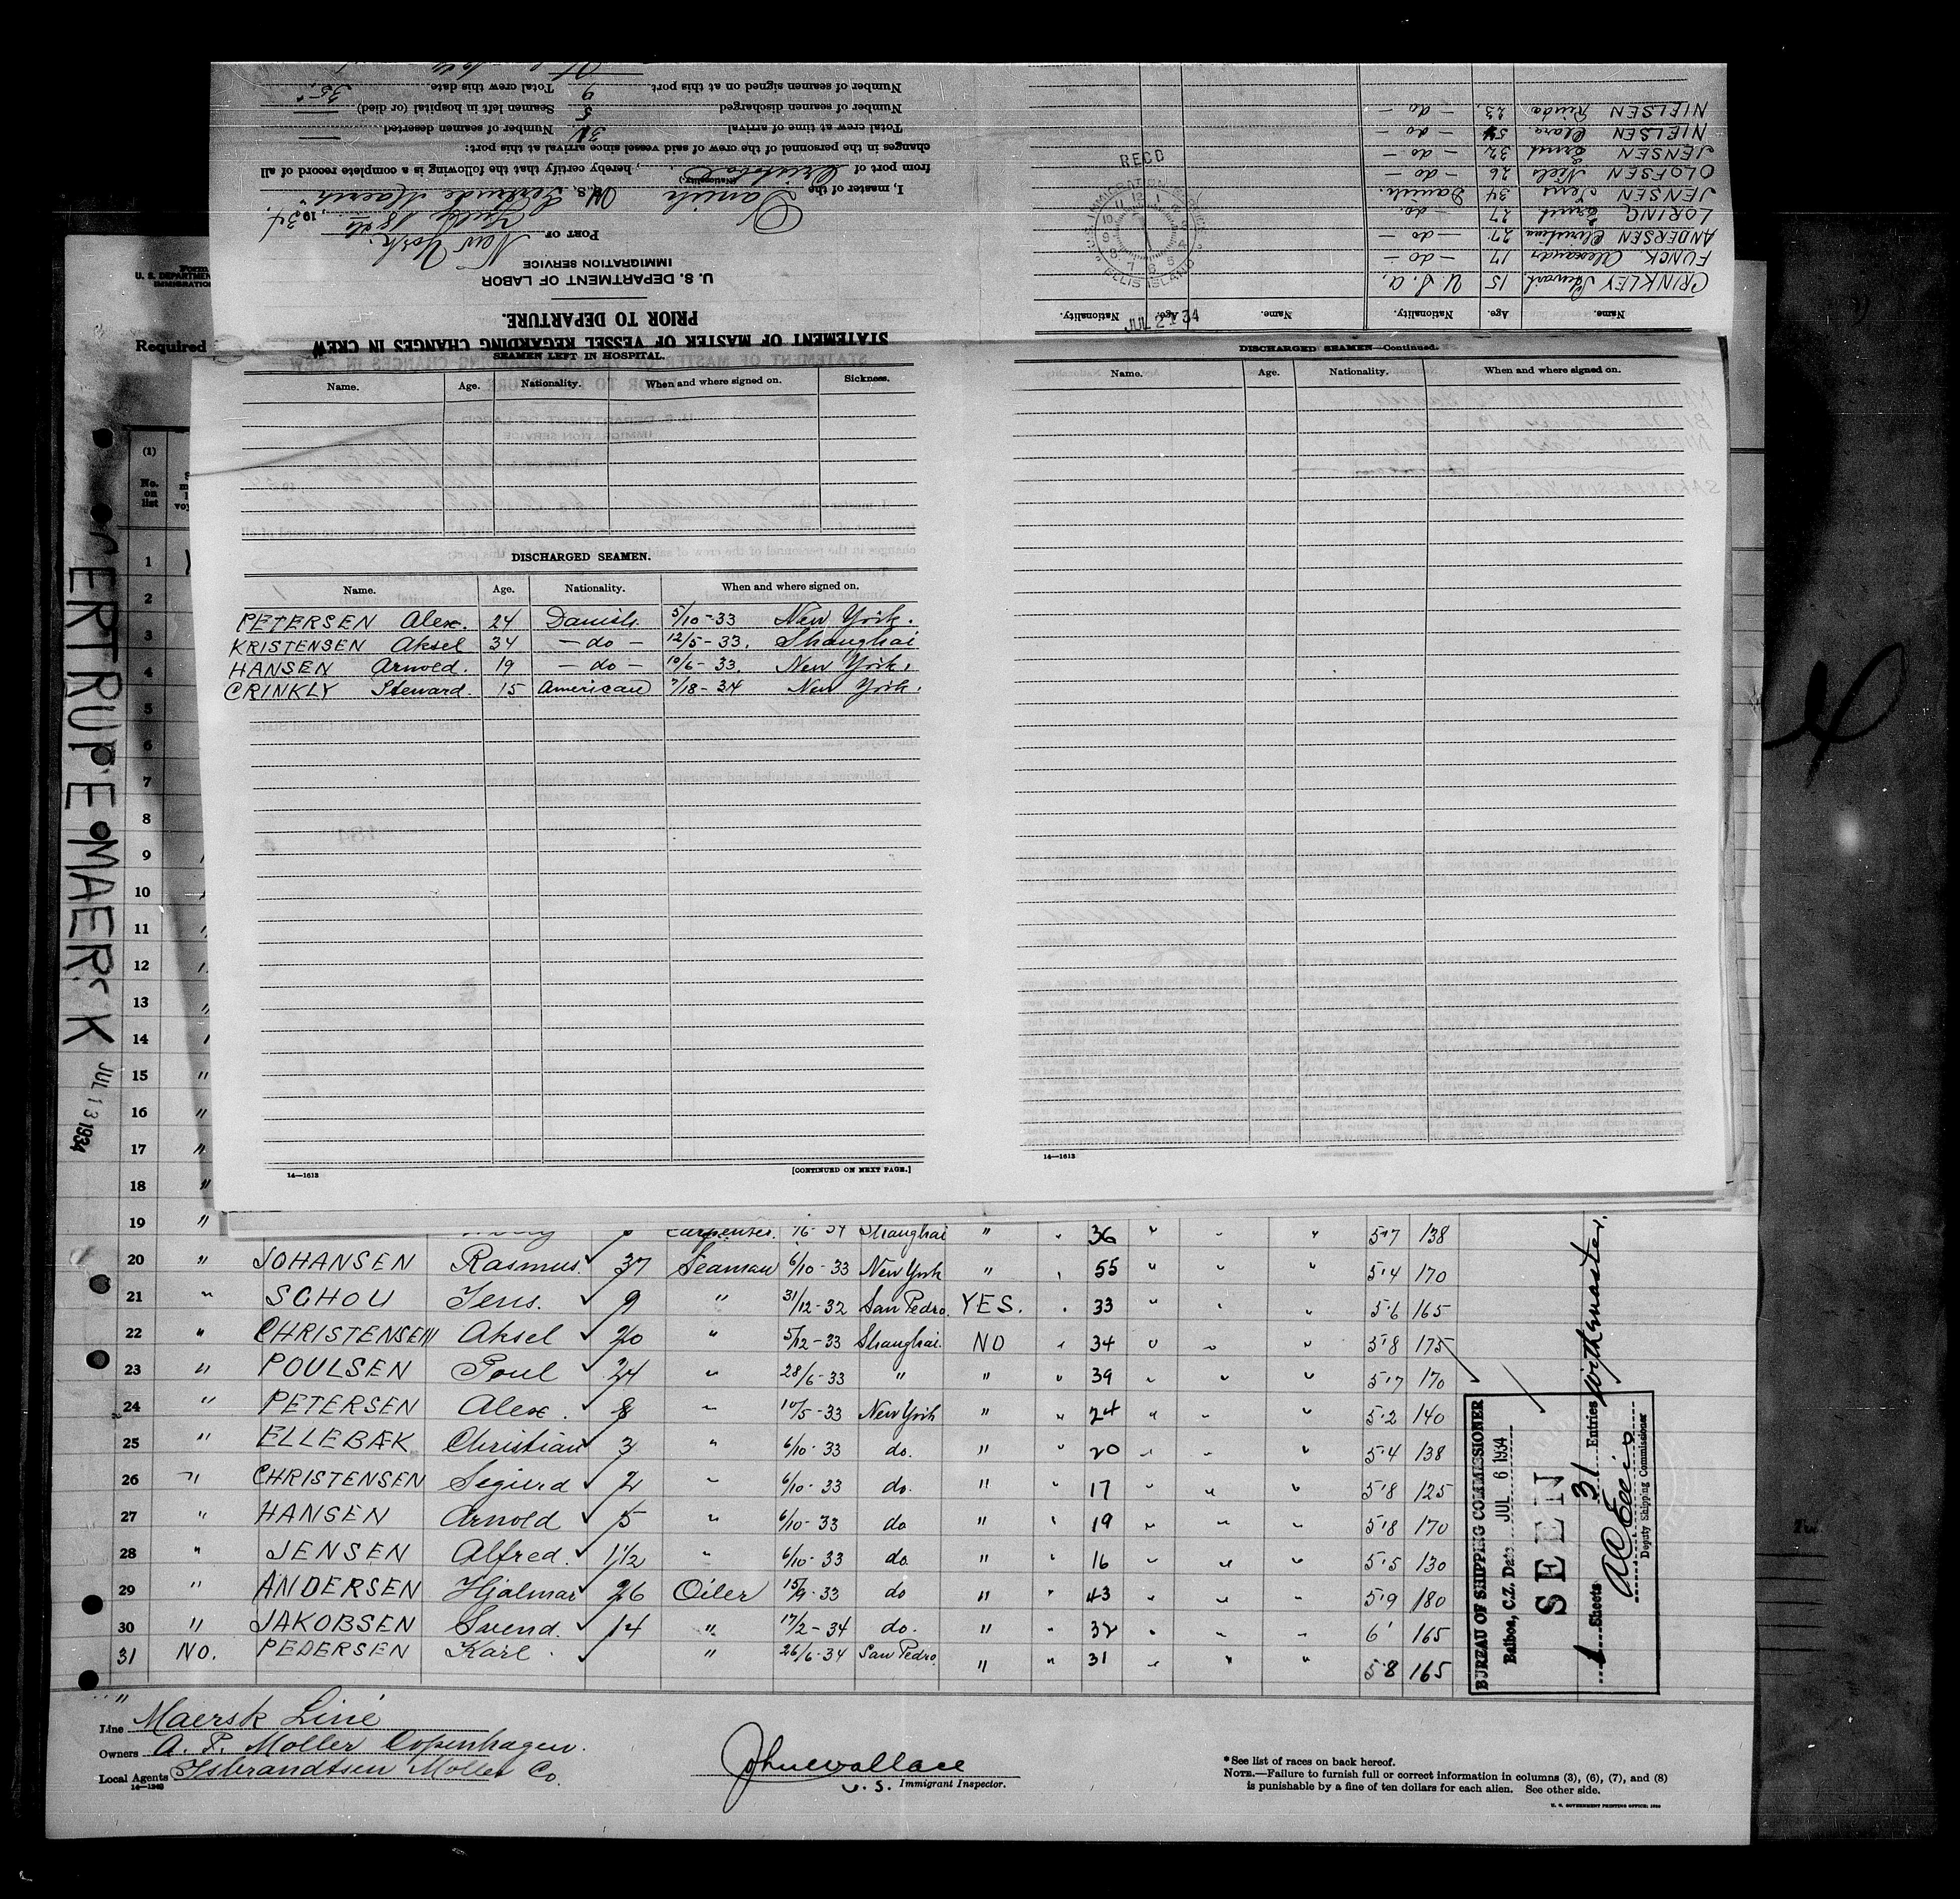 STATEMENT OF MASTER OF VESSEL REGARDING CHANGES IN CREW
PRIOR TO DEPARTURE.
U. S. DEPARTMENT OF LABOR
IMMIGRATION SERVICE
PORT OF New York.
July 18th, 1934.
I, master of the Danish M.S. Gertrude Maersk
(Nationality)
from port of Cristobal, hereby certify that the following is a complete record of all
changes in the personnel of the crew of said vessel since arrival at this port:
Total crew at time of arrival 31 Number of seamen deserted
Number of seamen discharged 5 Seamen left in hospital (or died)
Number of seamen signed on at this port 9 Total crew this date 35
Name. Age. Nationality. Name. Age. Nationality.
CRINKLEY Stewart 15 U.S.A.
FUNCK Alexander 17 — do —
ANDERSEN Christina 27 — do —
LORING Ernst 27 — do.
JENSEN Jens 34 Danish.
OLOFSEN Niels 26 — do —
JENSEN Ernst 32 — do —
NIELSEN Clara 54 — do —
NIELSEN 23 — do —
REC'D
U.S. IMMIGRATION SERVICE
ELLIS ISLAND
JUL 21 34
SEAMEN LEFT IN HOSPITAL.
Name. Age. Nationality. When and where signed on. Sickness.
DISCHARGED SEAMEN.
Name. Age. Nationality. When and where signed on.
PETERSEN Alex. 24 Danish. 5/10-33 New York.
KRISTENSEN Aksel 34 — do — 12/5-33. Shanghai
HANSEN Arnold. 19 — do — 10/6-33. New York.
CRINKLY Steward. 15 American 7/18-34 New York.
14—1613 [CONTINUED ON NEXT PAGE.]
DISCHARGED SEAMEN—Continued.
Name. Age. Nationality. When and where signed on.
14—1613
Form
U. S. DEPARTMENT
IMMIGRATION
Required
(1)
No. on list
GERTRUDE MAERSK
JUL 13 1934
1
2
3
4
5
6
7
8
9
10
11
12
13
14
15
16
17
18
19 " Carpenter. Shanghai " 36 " " " 5·7 138
20 " JOHANSEN Rasmus. 37 Seaman 6/10-33 New York " 55 " " " 5·4 170
21 " SCHOU Jens. 9 " 31/12-32 San Pedro. YES. 33 " " " 5·6 165
22 " CHRISTENSEN Aksel 20 " 5/12-33 Shanghai. NO 34 " " " 5·8 175
23 " POULSEN Poul 24 " 28/6-33 " " 39 " " " 5·7 170
24 " PETERSEN Alex. 8 " 10/5-33 New York " 24 " " " 5·2 140
25 " ELLEBÆK Christian 3 " 6/10-33 do. " 20 " " 5·4 138
26 " CHRISTENSEN Sigurd 2 " 6/10-33 do. " 17 " " " 5·8 125
27 " HANSEN Arnold 5 " 6/10-33 do " 19 " " " 5·8 170
28 " JENSEN Alfred. 1 1/2 " 6/10-33 do. " 16 " " " 5·5 130
29 " ANDERSEN Hjalmar 26 Oiler 15/9-33 do " 43 " " " 5·9 180
30 " JAKOBSEN Svend. 14 " 17/2-34 do. " 32 " " " 6' 165
31 NO. PEDERSEN Karl. " 26/6-34 San Pedro. " 31 " " " 5·8 165
BUREAU OF SHIPPING COMMISSIONER
Balboa, C.Z. Date JUL 6 1934
SEEN
1 Sheets 31 Entries
Deputy Shipping Commissioner
Line Maersk Line
Owners A. P. Moller Copenhagen.
Local Agents Isbrandtsen Moller Co.
14—1240
John Wallace
U. S. Immigrant Inspector.
*See list of races on back hereof.
NOTE.—Failure to furnish full or correct information in columns (3), (6), (7), and (8)
is punishable by a fine of ten dollars for each alien. See other side.
U. S. GOVERNMENT PRINTING OFFICE